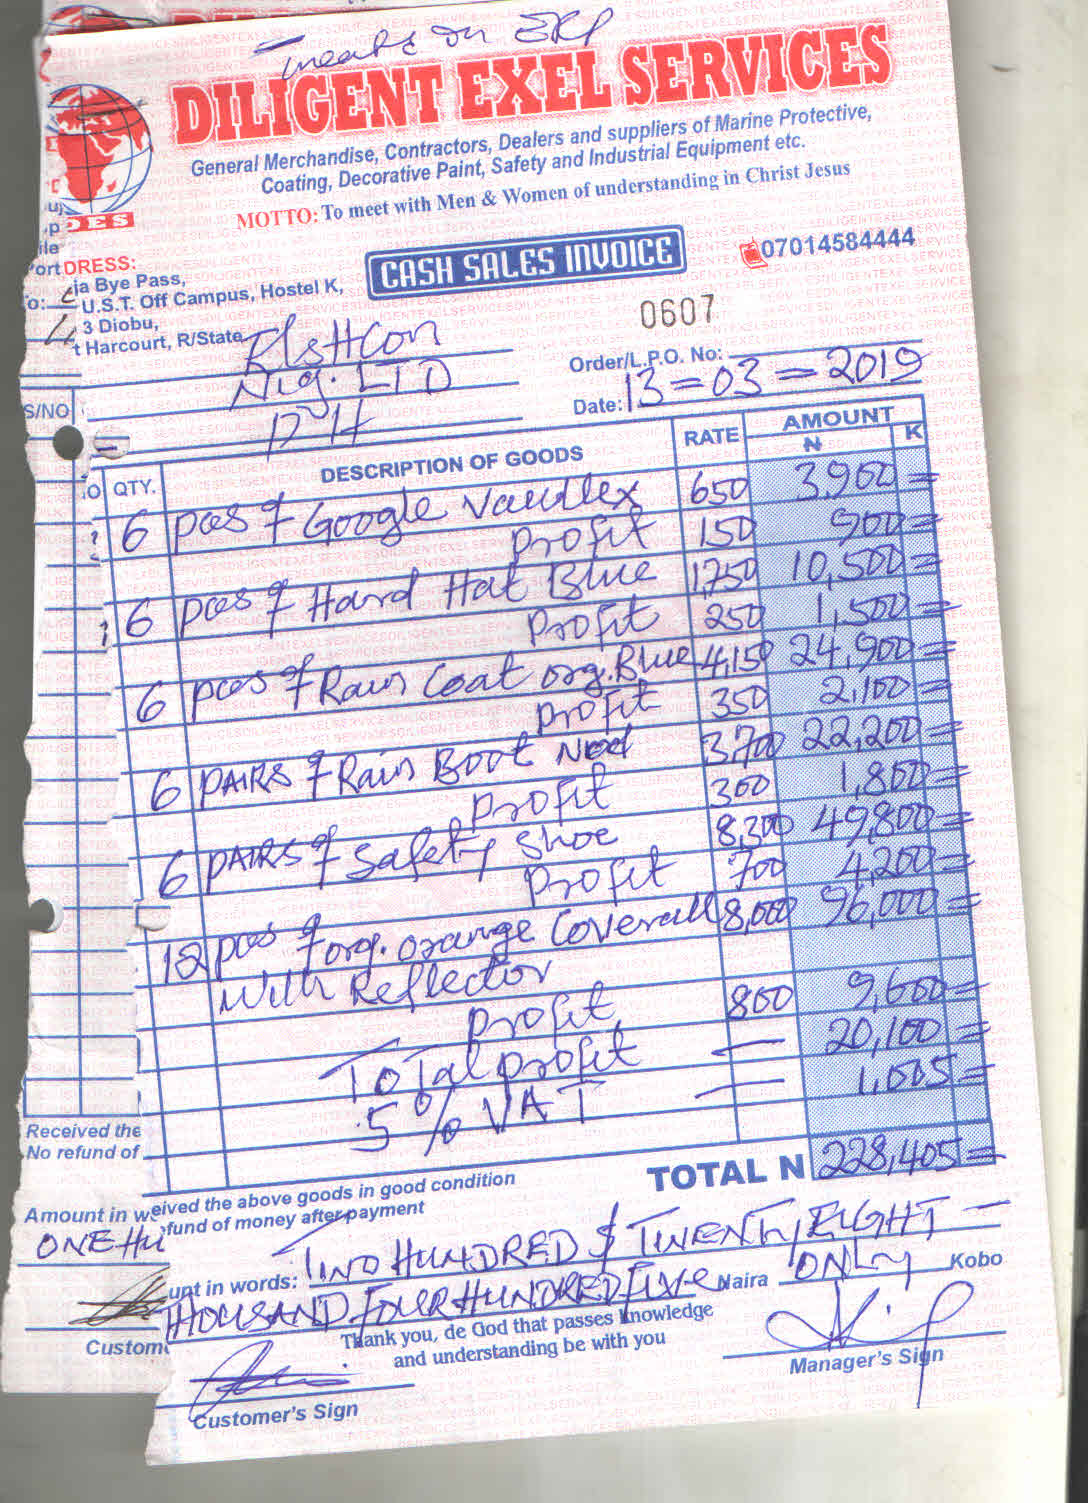 DILIGENT EXEL SERVICES
General Merchandise, Contractors, Dealers and suppliers of Marine Protective,
Coating, Decorative Paint, Safety and Industrial Equipment etc.
MOTTO: To meet with Men & Women of understanding in Christ Jesus
DES
CASH SALES INVOICE
07014584444
DRESS:
ia Bye Pass,
U.S.T. Off Campus, Hostel K,
3 Diobu,
t Harcourt, R/State
0607
Nig. LTD
Order/L.P.O. No:
Date: 13=03=2019
S/NO
QTY. DESCRIPTION OF GOODS RATE AMOUNT
N K
6 pcs of Google 650 3,900=
profit 150 900=
6 pcs of Hard Hat Blue 1,750 10,500=
profit 250 1,500=
6 pcs of Rain Coat org. Blue 4,150 24,900=
profit 350 2,100=
6 PAIRS of Rain Boot 3,700 22,200=
profit 300 1,800=
6 PAIRS of Safety Shoe 8,300 49,800=
profit 700 4,200=
12 pcs of org. orange Coverall 8,000 96,000=
with Reflector
profit 800 9,600=
Total profit — 20,100=
5% VAT — 1,005=
TOTAL N 228,405=
Received the
No refund of
eived the above goods in good condition
fund of money after payment
Amount in w
ONE HU
unt in words: TWO HUNDRED & TWENTY EIGHT
THOUSAND FOUR HUNDRED FIVE Naira ONLY Kobo
Thank you, de God that passes knowledge
and understanding be with you
Custom
Customer's Sign
Manager's Sign